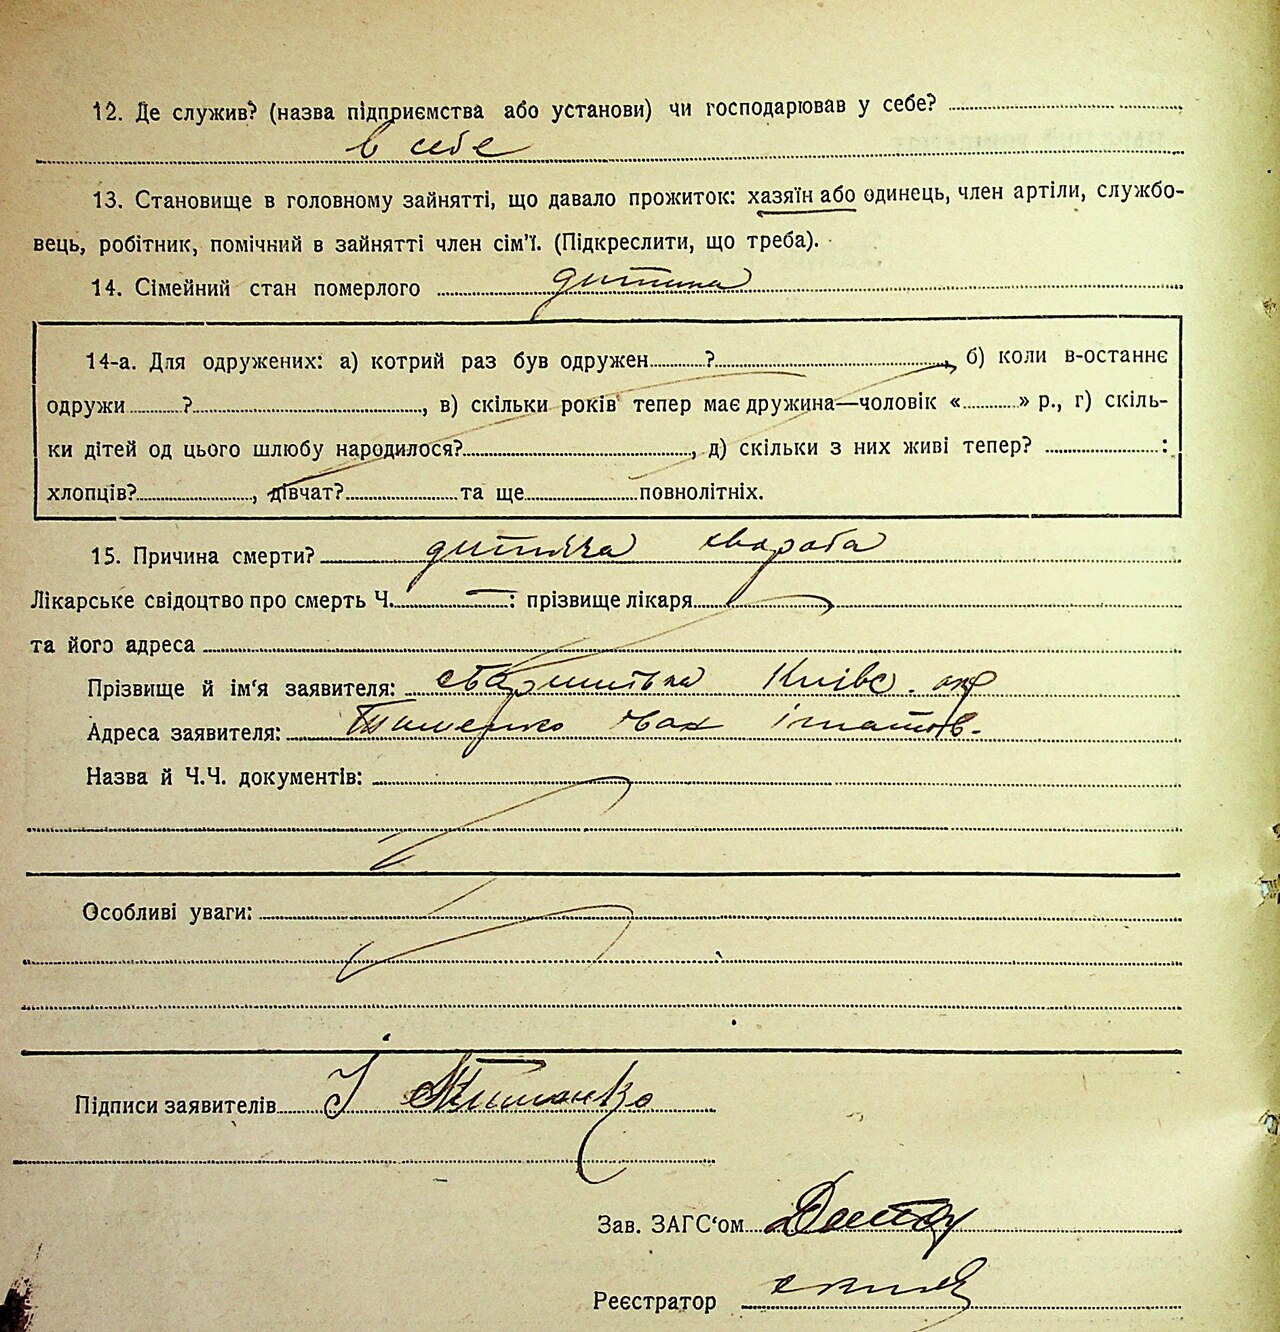 12. Де служив? (назва підприємства або установи) чи господарював у себе?
в себе
13. Становище в головному зайнятті, що давало прожиток: хазяїн або одинець, член артіли, службо-
вець, робітник, помічний в зайнятті член сім'ї. (Підкреслити, що треба).
14. Сімейний стан померлого дитина
14-а. Для одружених: а) котрий раз був одружен ? , б) коли в-останнє
одружи ? , в) скільки років тепер має дружина—чоловік « » р., г) скіль-
ки дітей од цього шлюбу народилося? , д) скільки з них живі тепер? :
хлопців? , дівчат? та ще повнолітніх.
15. Причина смерти? дитяча хвороба
Лікарське свідоцтво про смерть Ч. — : прізвище лікаря
та його адреса
Прізвище й ім'я заявителя: Київс. окр
Адреса заявителя:
Назва й Ч.Ч. документів:
Особливі уваги:
Підписи заявителів І Тименко
Зав. ЗАГС'ом
Реєстратор